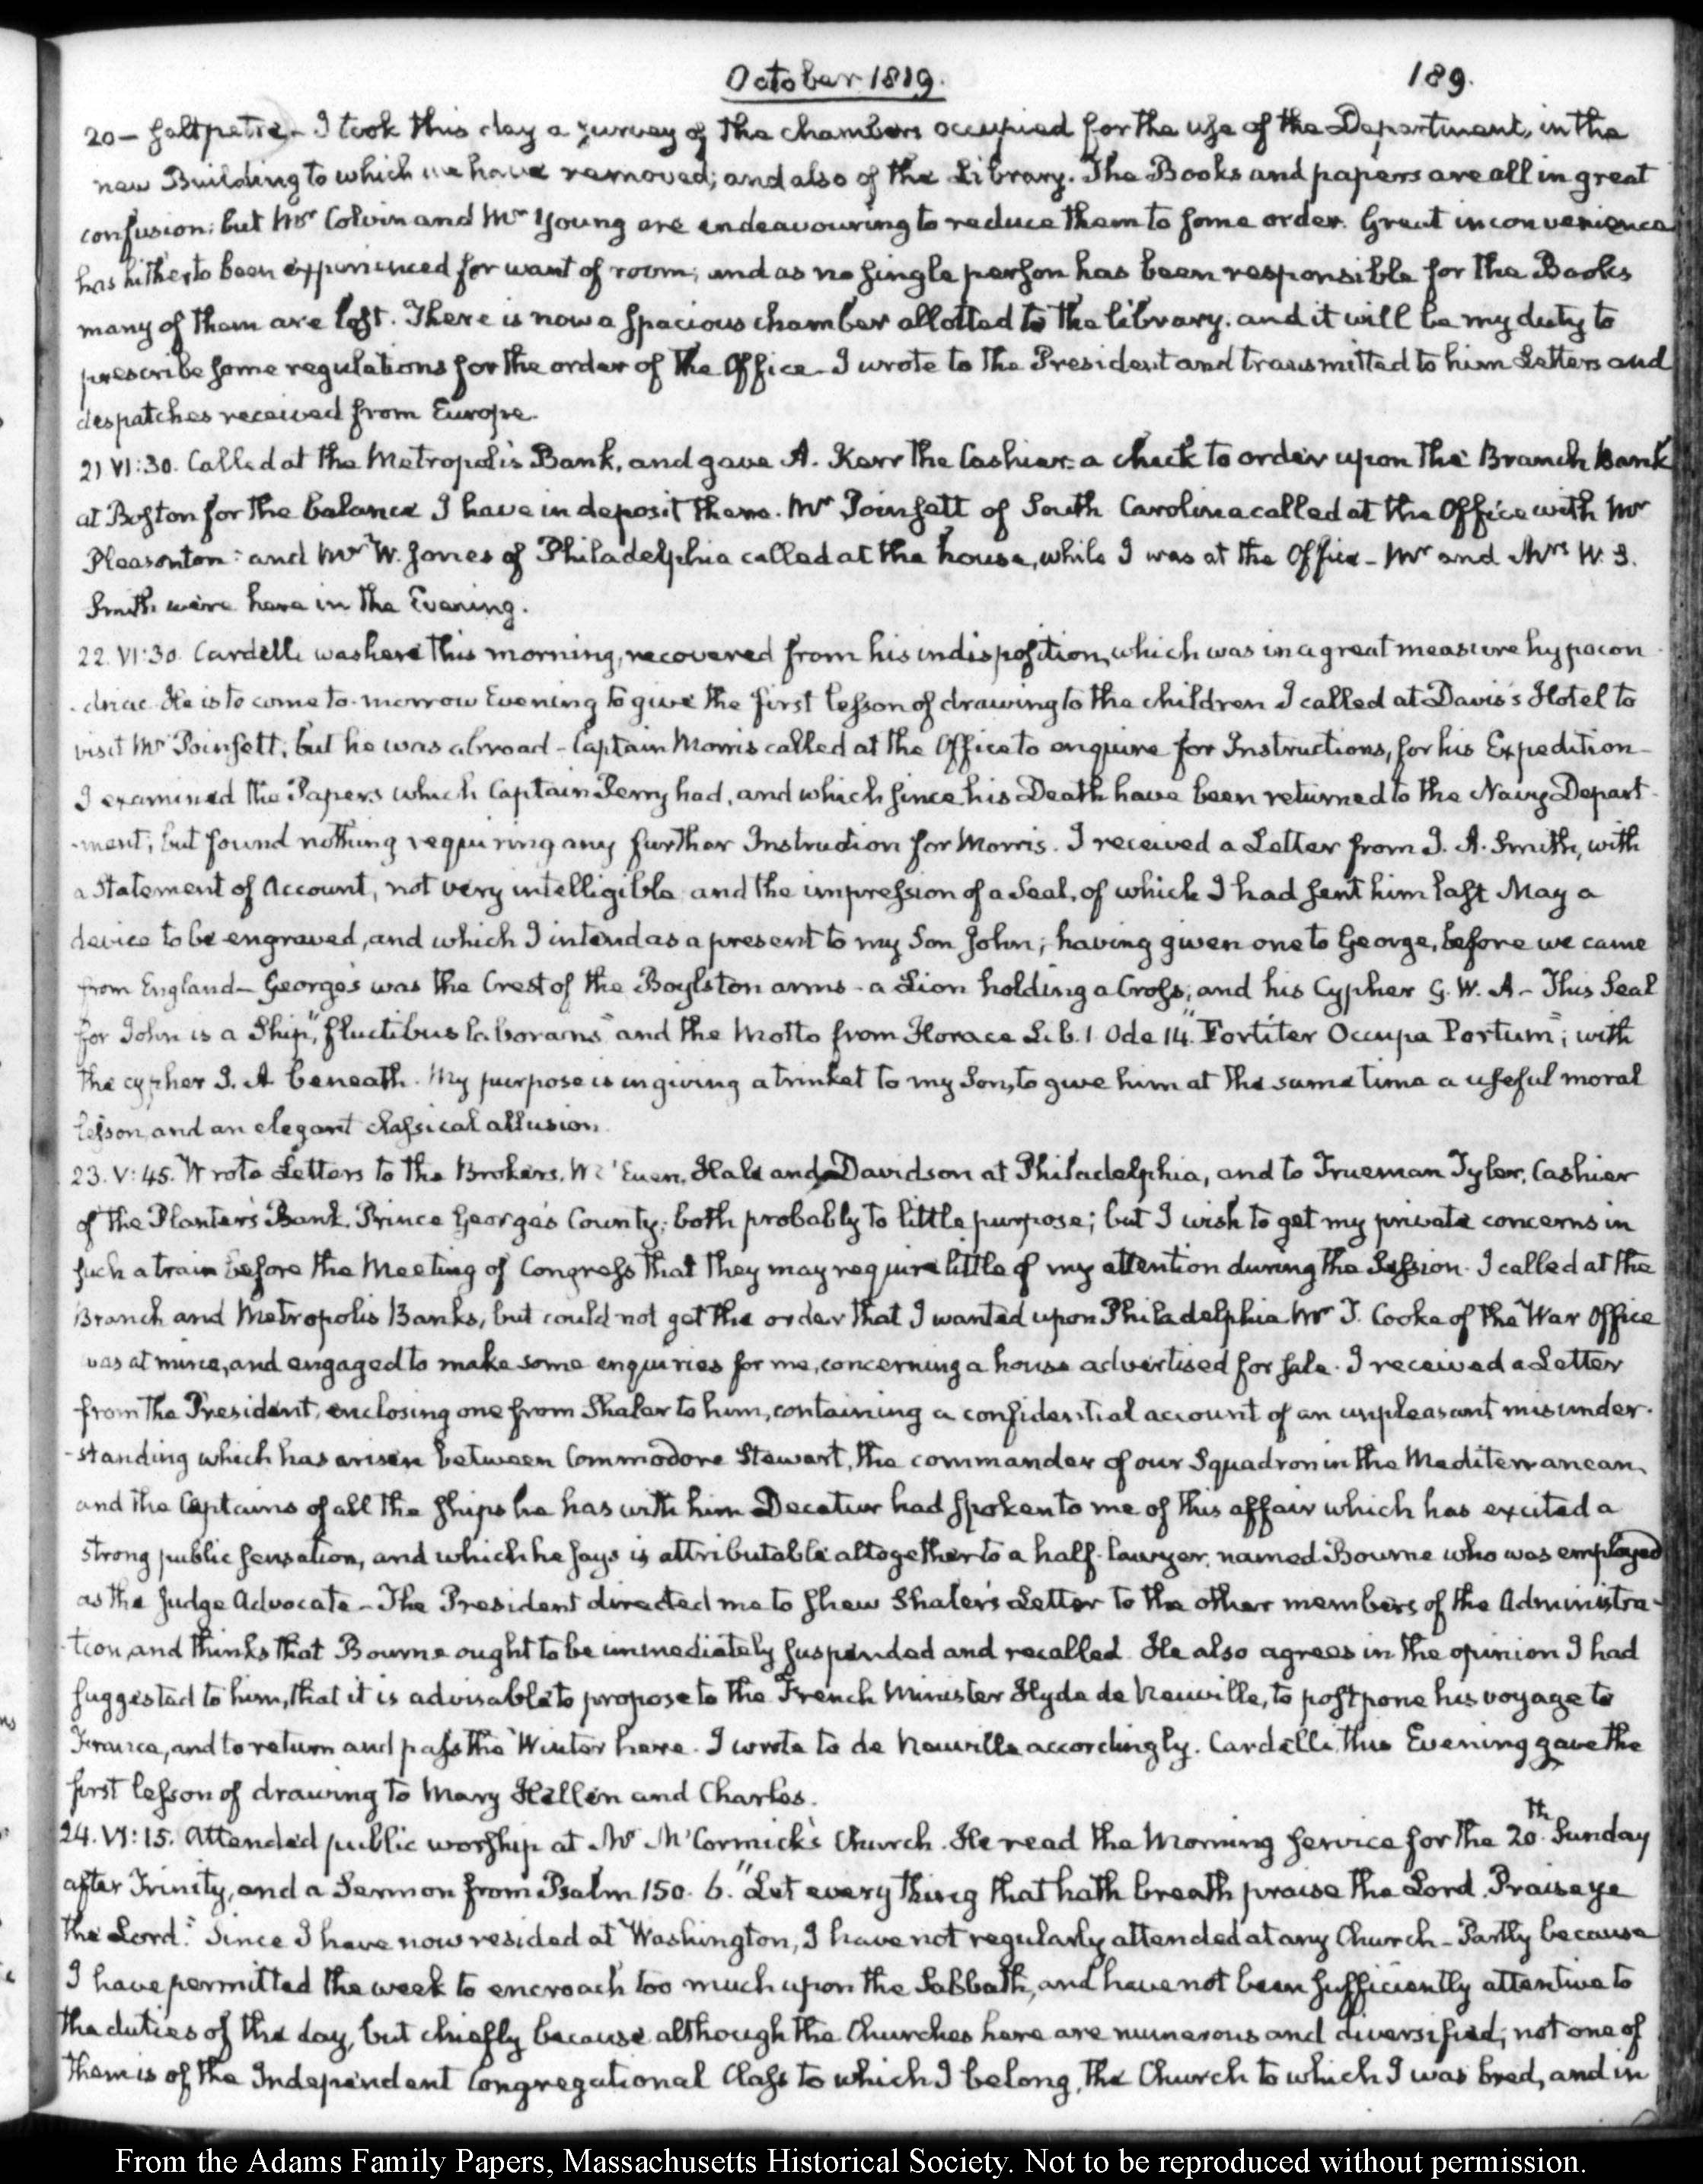 October 1819.
189.
20 — Saltpetre — I took this day a survey of the chambers occupied for the use of the Department, in the
new Building to which we have removed; and also of the Library. The Books and papers are all in great
confusion; but Mr Colvin and Mr Young are endeavouring to reduce them to some order. Great inconvenience
has hitherto been experienced for want of room; and as no single person has been responsible for the Books
many of them are lost. There is now a spacious chamber allotted to the library. and it will be my duty to
prescribe some regulations for the order of the Office — I wrote to the President and transmitted to him Letters and
despatches received from Europe.
21 VI:30. Called at the Metropolis Bank, and gave A. Kerr the Cashier a check to order upon the Branch Bank
at Boston for the balance I have in deposit there. Mr Poinsett of South Carolina called at the Office with Mr
Pleasonton: and Mr W. Jones of Philadelphia called at the house, while I was at the Office — Mr and Mrs W. S.
Smith were here in the Evening.
22. VI:30. Cardelli was here this morning, recovered from his indisposition, which was in a great measure hypocon
-driac. He is to come to-morrow Evening to give the first lesson of drawing to the children I called at Davis's Hotel to
visit Mr Poinsett, but he was abroad — Captain Morris called at the Office to enquire for Instructions, for his Expedition —
I examined the Papers which Captain Perry had, and which since his Death have been returned to the Navy Depart-
-ment; but found nothing requiring any further Instruction for Morris. I received a Letter from J. A. Smith, with
a Statement of Account, not very intelligible, and the impression of a Seal, of which I had sent him last May a
device to be engraved, and which I intend as a present to my Son John; having given one to George, before we came
from England — George's was the Crest of the Boylston arms — a Lion holding a Cross; and his Cypher G. W. A — This Seal
for John is a Ship, "fluctibus laborans" and the Motto from Horace Lib. 1 Ode 14. "Fortiter Occupa Portum"; with
the cypher J. A beneath. My purpose is in giving a trinket to my Son, to give him at the same time a useful moral
lesson, and an elegant classical allusion.
23. V:45. Wrote Letters to the Brokers, Mc'Euen, Hale and Davidson at Philadelphia, and to Trueman Tyler, Cashier
of the Planter's Bank, Prince George's County; both probably to little purpose; but I wish to get my private concerns in
such a train before the Meeting of Congress that they may require little of my attention during the Session. I called at the
Branch and Metropolis Banks, but could not get the order that I wanted upon Philadelphia Mr J. Cooke of the War Office
was at mine, and engaged to make some enquiries for me, concerning a house advertised for sale. I received a Letter
from the President, enclosing one from Shaler to him, containing a confidential account of an unpleasant misunder-
-standing which has arisen between Commodore Stewart, the commander of our Squadron in the Mediterranean,
and the Captains of all the ships he has with him Decatur had spoken to me of this affair which has excited a
strong public sensation, and which he says is attributable altogether to a half-lawyer, named Bourne who was employed
as the Judge Advocate — The President directed me to shew Shaler's Letter to the other members of the Administra-
-tion, and thinks that Bourne ought to be immediately suspended and recalled. He also agrees in the opinion I had
suggested to him, that it is advisable to propose to the French Minister Hyde de Neuville, to postpone his voyage to
France, and to return and pass the Winter here. I wrote to de Neuville accordingly. Cardelli this Evening gave the
first lesson of drawing to Mary Hellen and Charles.
24. VI:15. Attended public worship at Mr McCormick's Church. He read the Morning Service for the 20th Sunday
after Trinity, and a Sermon from Psalm 150. 6. "Let every thing that hath breath praise the Lord. Praise ye
the Lord." Since I have now resided at Washington, I have not regularly attended at any Church — Partly because
I have permitted the week to encroach too much upon the Sabbath, and have not been sufficiently attentive to
the duties of the day, but chiefly because although the Churches here are numerous and diversified, not one of
them is of the Independent Congregational Class to which I belong, the Church to which I was bred, and in
From the Adams Family Papers, Massachusetts Historical Society. Not to be reproduced without permission.